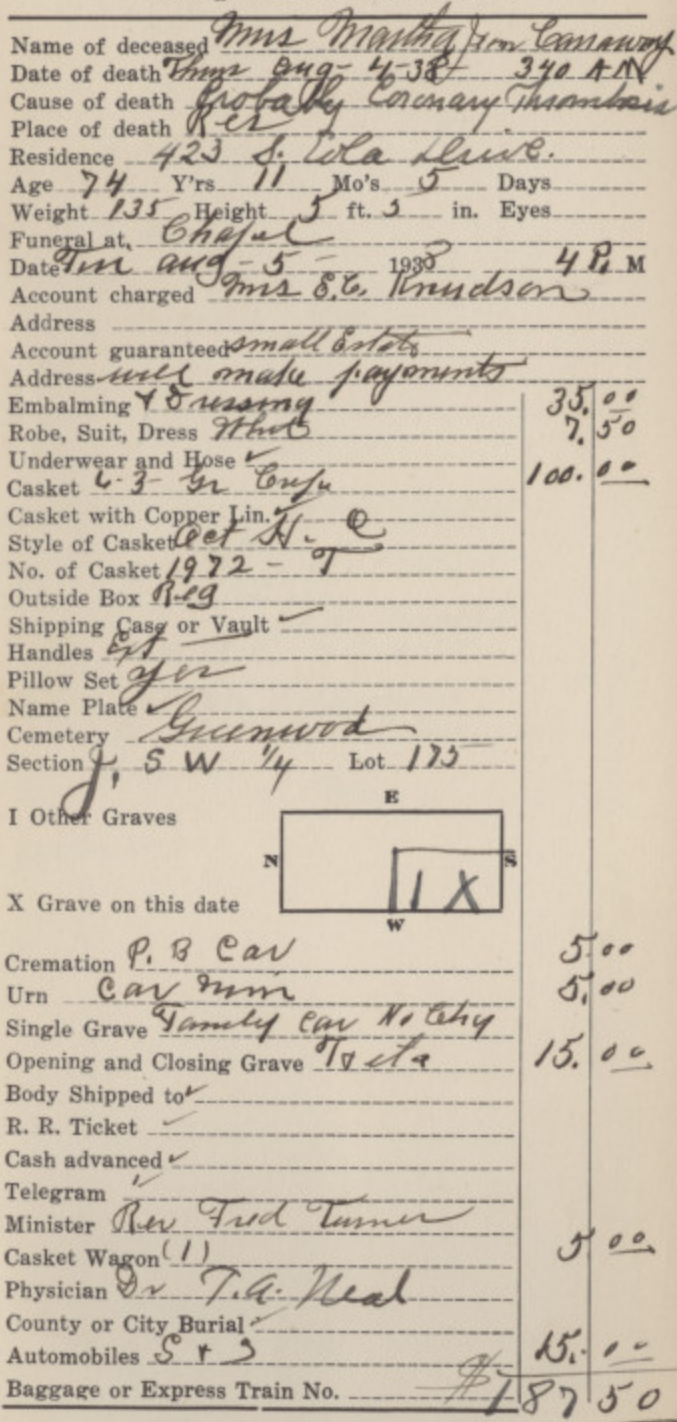 Name of deceased Mrs Martha Jean Cannaway
Date of death Thur Aug - 4-38 340 AM
Cause of death Probably Coronary Thrombosis
Place of death Res
Residence 423 S. Eola Drive.
Age 74 Y'rs 11 Mo's 5 Days
Weight 135 Height 5 ft. 3 in. Eyes
Funeral at, Chapel
Date Aug - 5 - 1938 4 P. M
Account charged Mrs E.C. Knudson
Address
Account guaranteed small Estate
Address will make payments
Embalming & Dressing 35.00
Robe, Suit, Dress 7.50
Underwear and Hose ✓
Casket 6-3 Gr 100.00
Casket with Copper Lin. ✓
Style of Casket Oct
No. of Casket 1972 - T
Outside Box Reg
Shipping Case or Vault ✓
Handles Ext
Pillow Set yes
Name Plate ✓
Cemetery Greenwood
Section J, S W 1/4 Lot 175
E
I Other Graves
N S
I X
X Grave on this date
W
Cremation P. B Car 5.00
Urn Car 5.00
Single Grave Family Car No Chg
Opening and Closing Grave 15.00
Body Shipped to ✓
R. R. Ticket ✓
Cash advanced ✓
Telegram ✓
Minister Rev Fred Turner
Casket Wagon (1) 5.00
Physician Dr T.A. Neal
County or City Burial ✓
Automobiles S & S 15.00
Baggage or Express Train No. $187 50